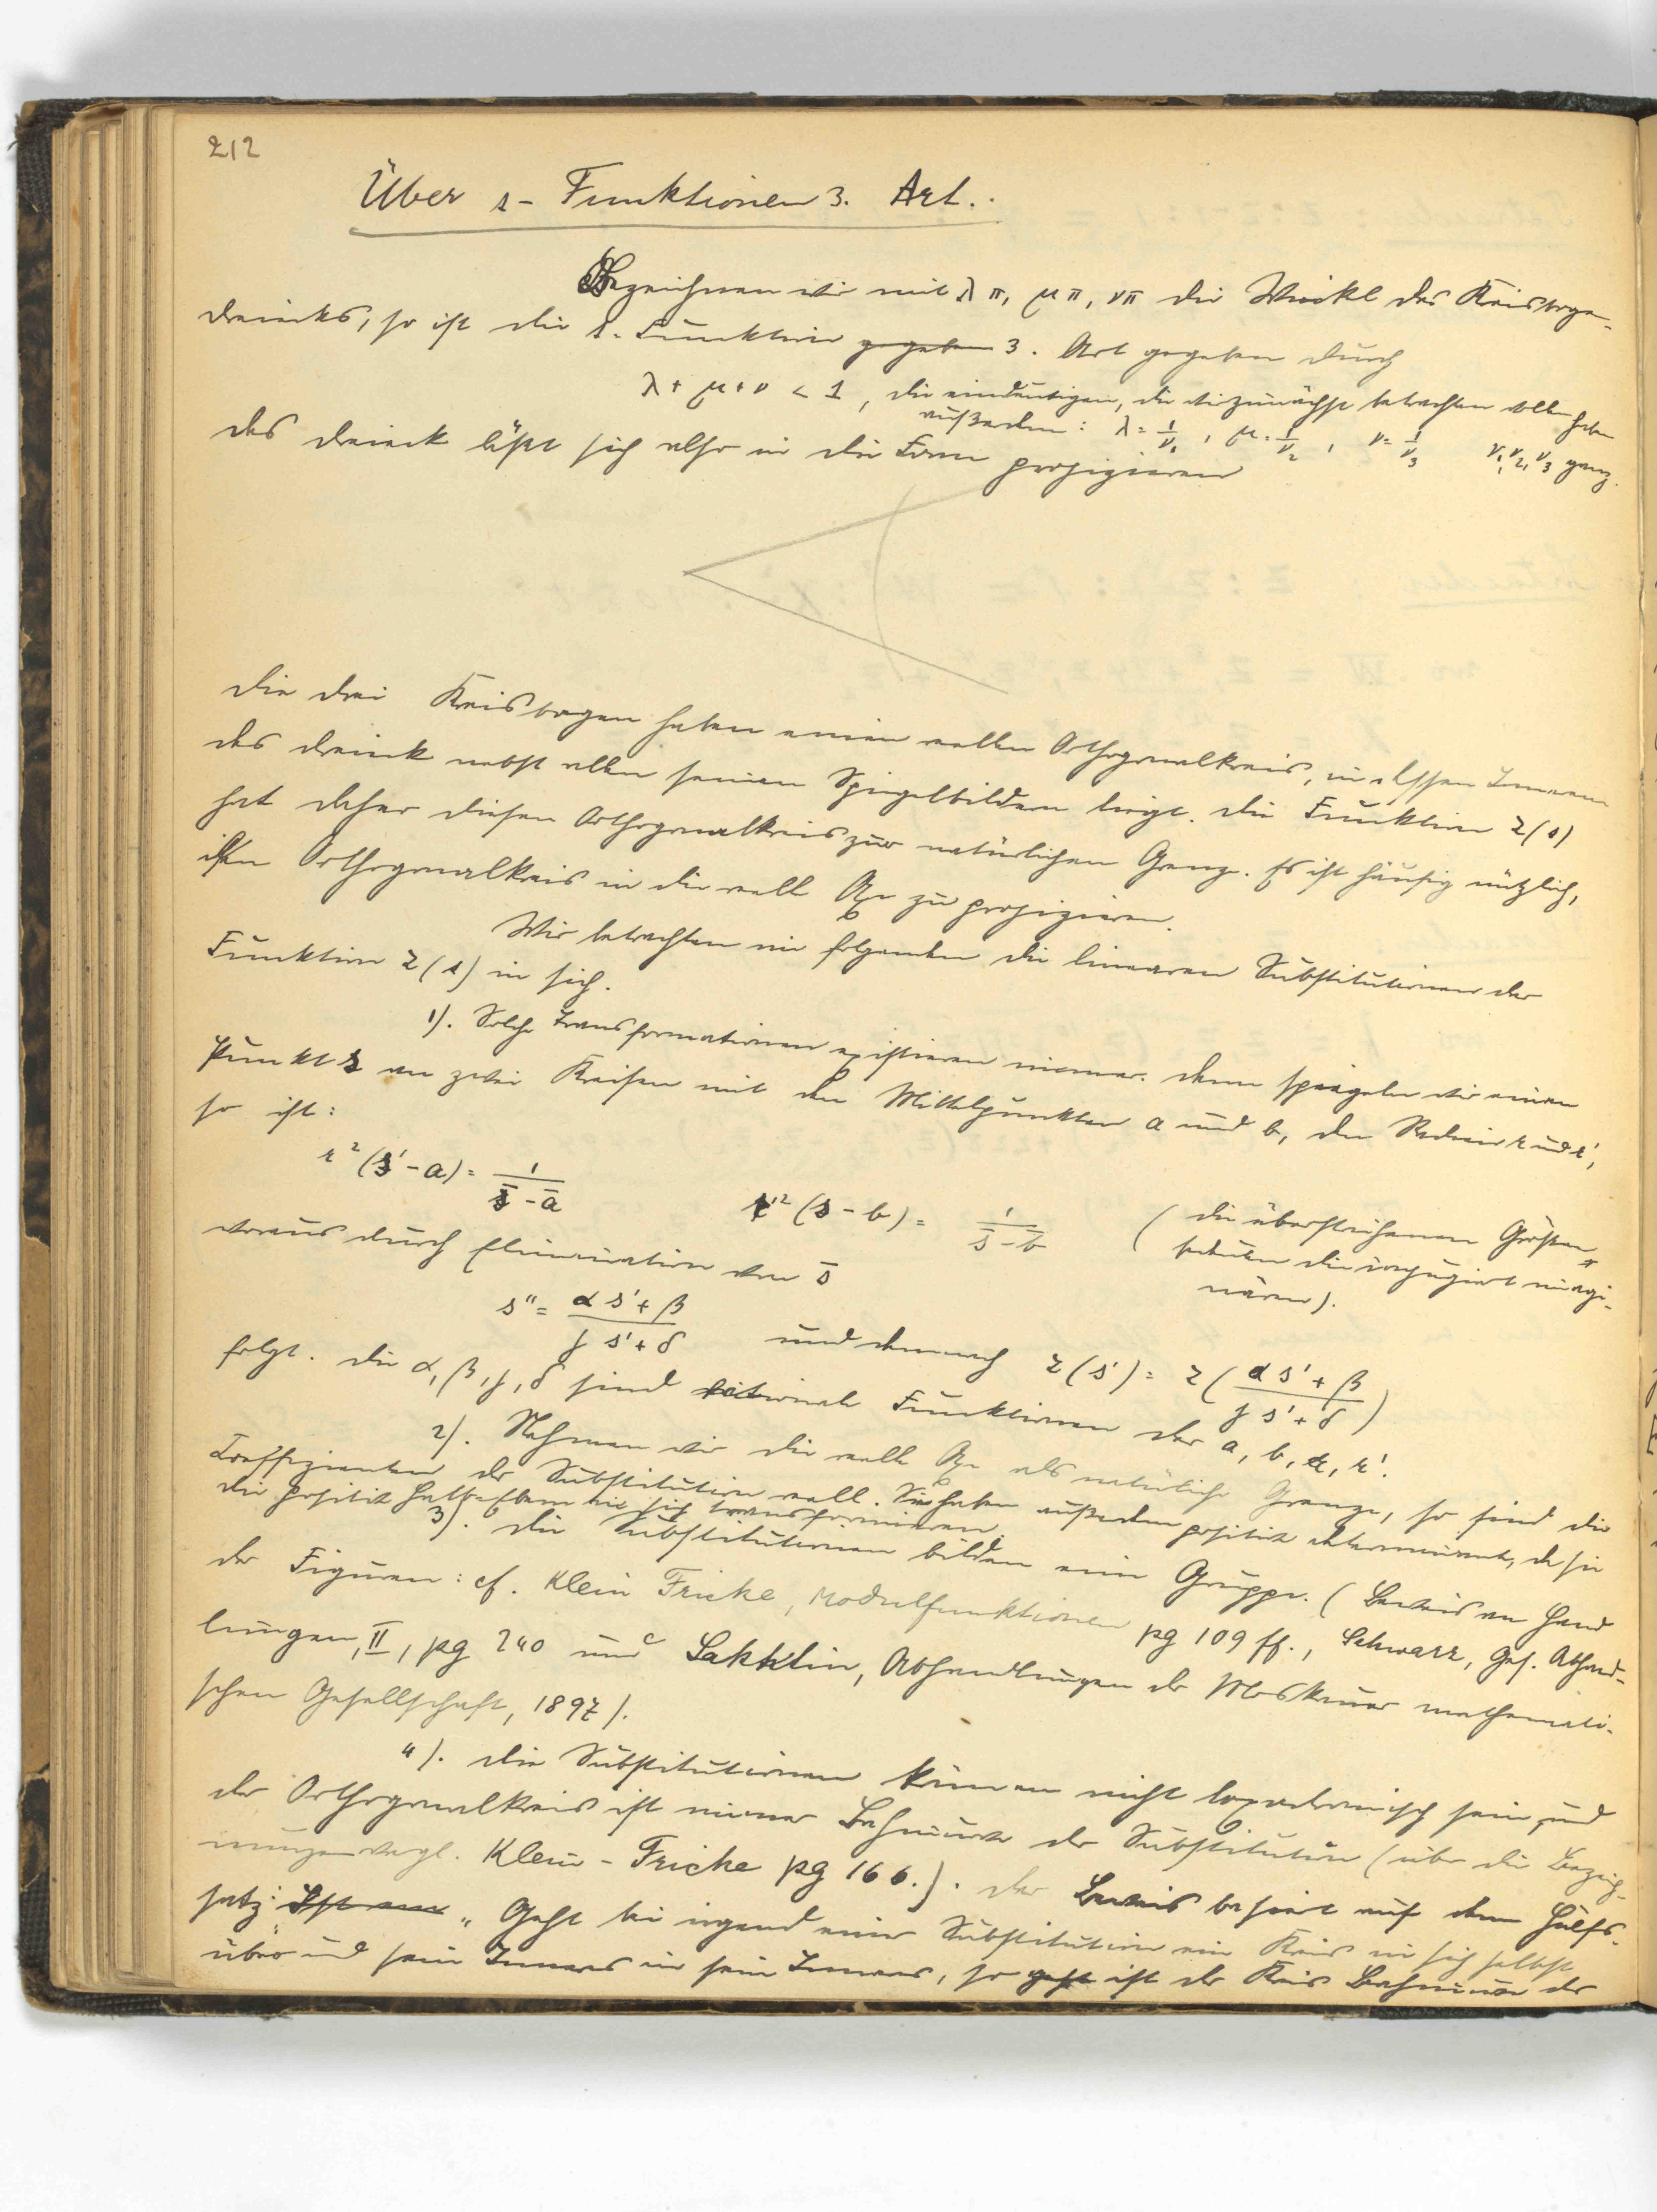 212
Über s-Funktionen 3. Art.
Bezeichnen wir mit λπ, μπ, νπ die Winkel des Kreisbogen-
dreiecks, so ist die s-Funktion gegeben 3. Art gegeben durch
λ + μ + ν < 1, die eindeutigen, die wir zunächst betrachten wollen haben
außerdem: λ = 1/ν₁, μ = 1/ν₂, ν = 1/ν₃ ν₁, ν₂, ν₃ ganz.
Das Dreieck läßt sich also in die Form projizieren
Die drei Kreisbogen haben einen reellen Orthogonalkreis, in dessen Innern
das Dreieck nebst allen seinen Spiegelbildern liegt. Die Funktion z(s)
hat daher diesen Orthogonalkreis zur natürlichen Grenze. Es ist häufig nützlich,
den Orthogonalkreis in die reelle Axe zu projizieren.
Wir betrachten im folgenden die linearen Substitutionen der
Funktion z(s) in sich.
1). Solche Transformationen existieren immer. Denn spiegeln wir einen
Punkt s an zwei Kreisen mit den Mittelpunkten a und b, den Radien r und r',
so ist:
r²(s' - a) = 1/(s̄ - ā) r'²(s - b) = 1/(s̄ - b̄) (die überstrichenen Größen
bedeuten die conjugiert imagi-
nären).
woraus durch Elimination von s̄
s'' = (αs' + β)/(γs' + δ) und demnach z(s') = z((αs' + β)/(γs' + δ))
folgt. Die α, β, γ, δ sind rationale Funktionen der a, b, r, r'.
2). Nehmen wir die reelle Axe als natürliche Grenze, so sind die
Coeffizienten der Substitution reell. Sie haben außerdem positive Determinante, da sie
die positive Halbebene in sich transformieren.
3). Die Substitutionen bilden eine Gruppe. (Beweis an Hand
der Figuren: cf. Klein Fricke, Modulfunktionen pg 109 ff., Schwarz, Ges. Abhand-
lungen, II, pg 240 und Lakhtin, Abhandlungen der Moskauer mathemati-
schen Gesellschaft, 1897).
4). Die Substitutionen können nicht loxodromisch sein, und
der Orthogonalkreis ist immer Bahncurve der Substitution (über die Bezeich-
nungen vergl. Klein-Fricke pg 166.). Der Beweis basiert auf dem Hülfs-
satz: Ist ein "Geht bei irgend einer Substitution ein Kreis in sich selbst
über und sein Inneres in sein Inneres, so geht ist der Kreis Bahncurve der